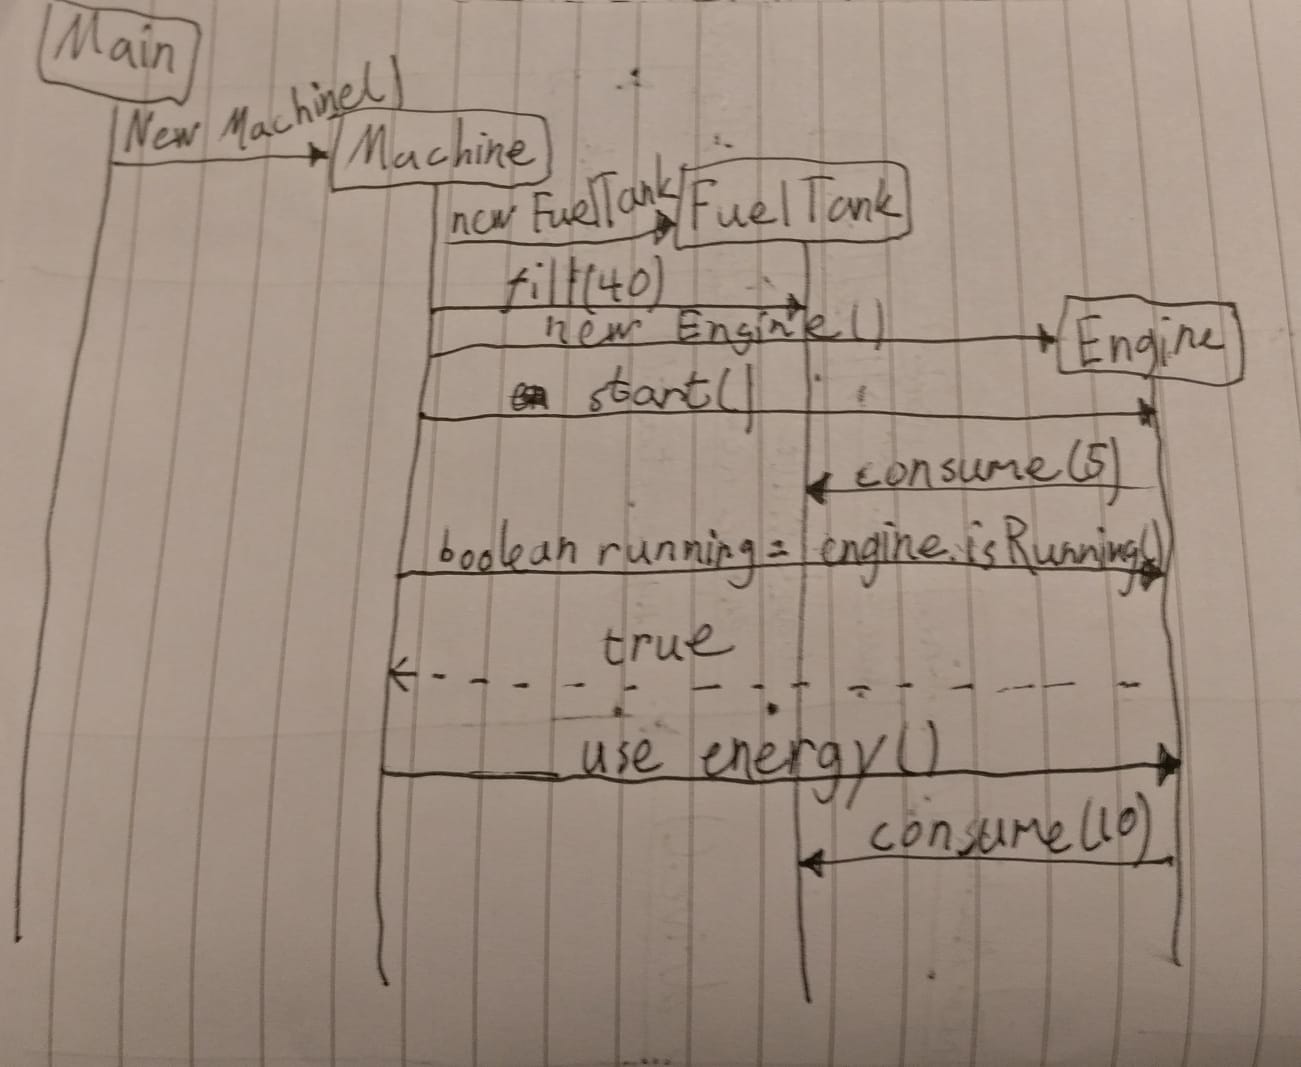 Main
New Machine()
Machine
new FuelTank
FuelTank
fill(40)
new Engine()
Engine
start()
consume(5)
boolean running = engine.isRunning()
true
use energy()
consume(10)